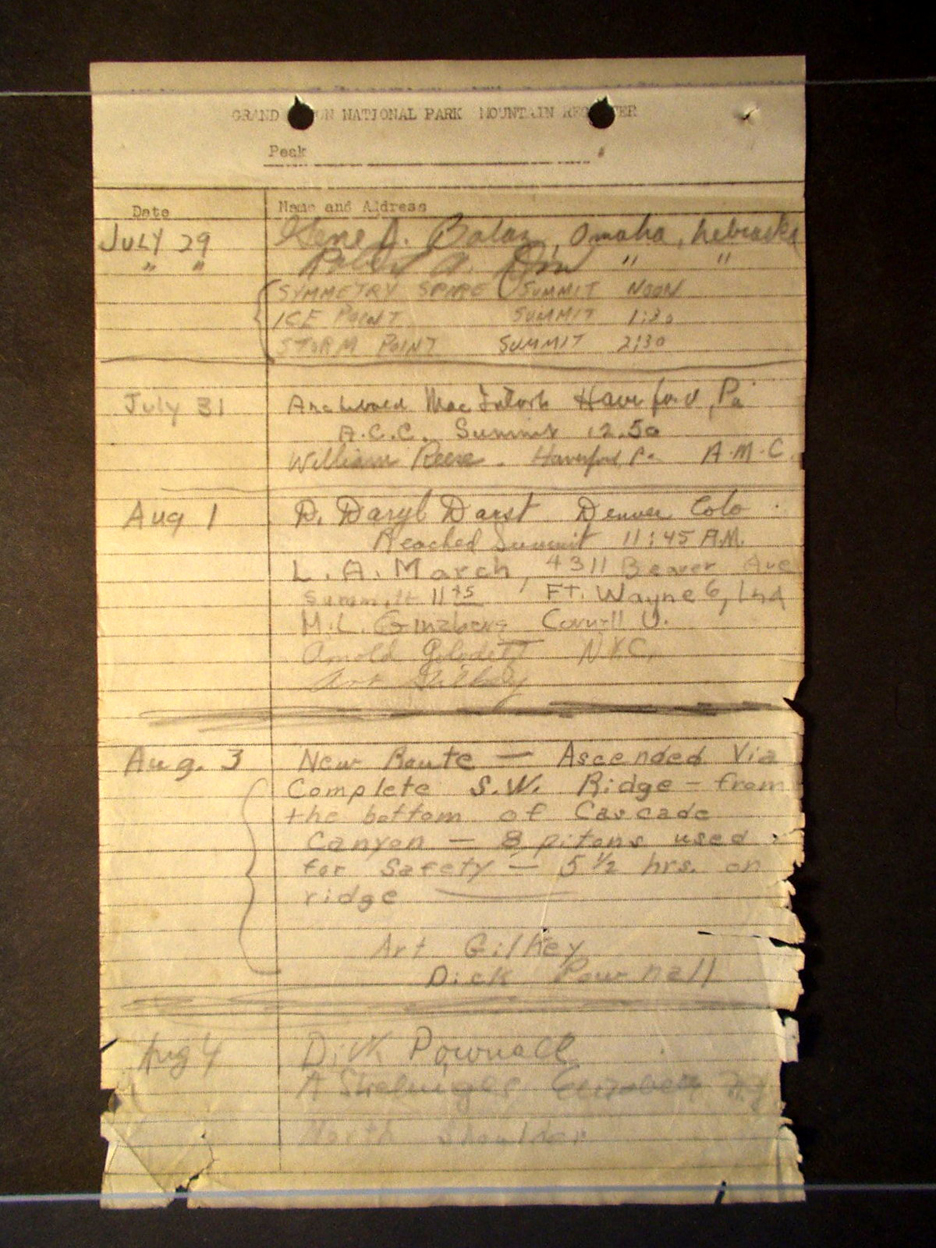 GRAND TETON NATIONAL PARK MOUNTAIN REGISTER
Peak
Date Name and Address
JULY 29 Gene J. Omaha, Nebraska
" " Robert A. " "
SYMMETRY SPIRE SUMMIT NOON
ICE POINT SUMMIT 1:30
STORM POINT SUMMIT 2:30
July 31 Archibald MacIntosh Haverford, Pa
A.C.C. Summit 12.50
William Reese. Haverford, Pa A.M.C.
Aug 1 D. Daryl Darst Denver Colo
Reached Summit 11:45 A.M.
L.A. March, 4311 Beaver Ave
Summit 11 45 Ft. Wayne 6, Ind
M.L. Ginzberg Cornell U.
Arnold N.Y.C.
Art Gilkey
Aug. 3 New Route — Ascended Via
Complete S.W. Ridge – from
the bottom of Cascade
Canyon — 8 pitons used
for Safety — 5 1/2 hrs. on
ridge
Art Gilkey
Dick Pownall
Aug 4 Dick Pownall
A Elizabeth N.J.
North Shoulder